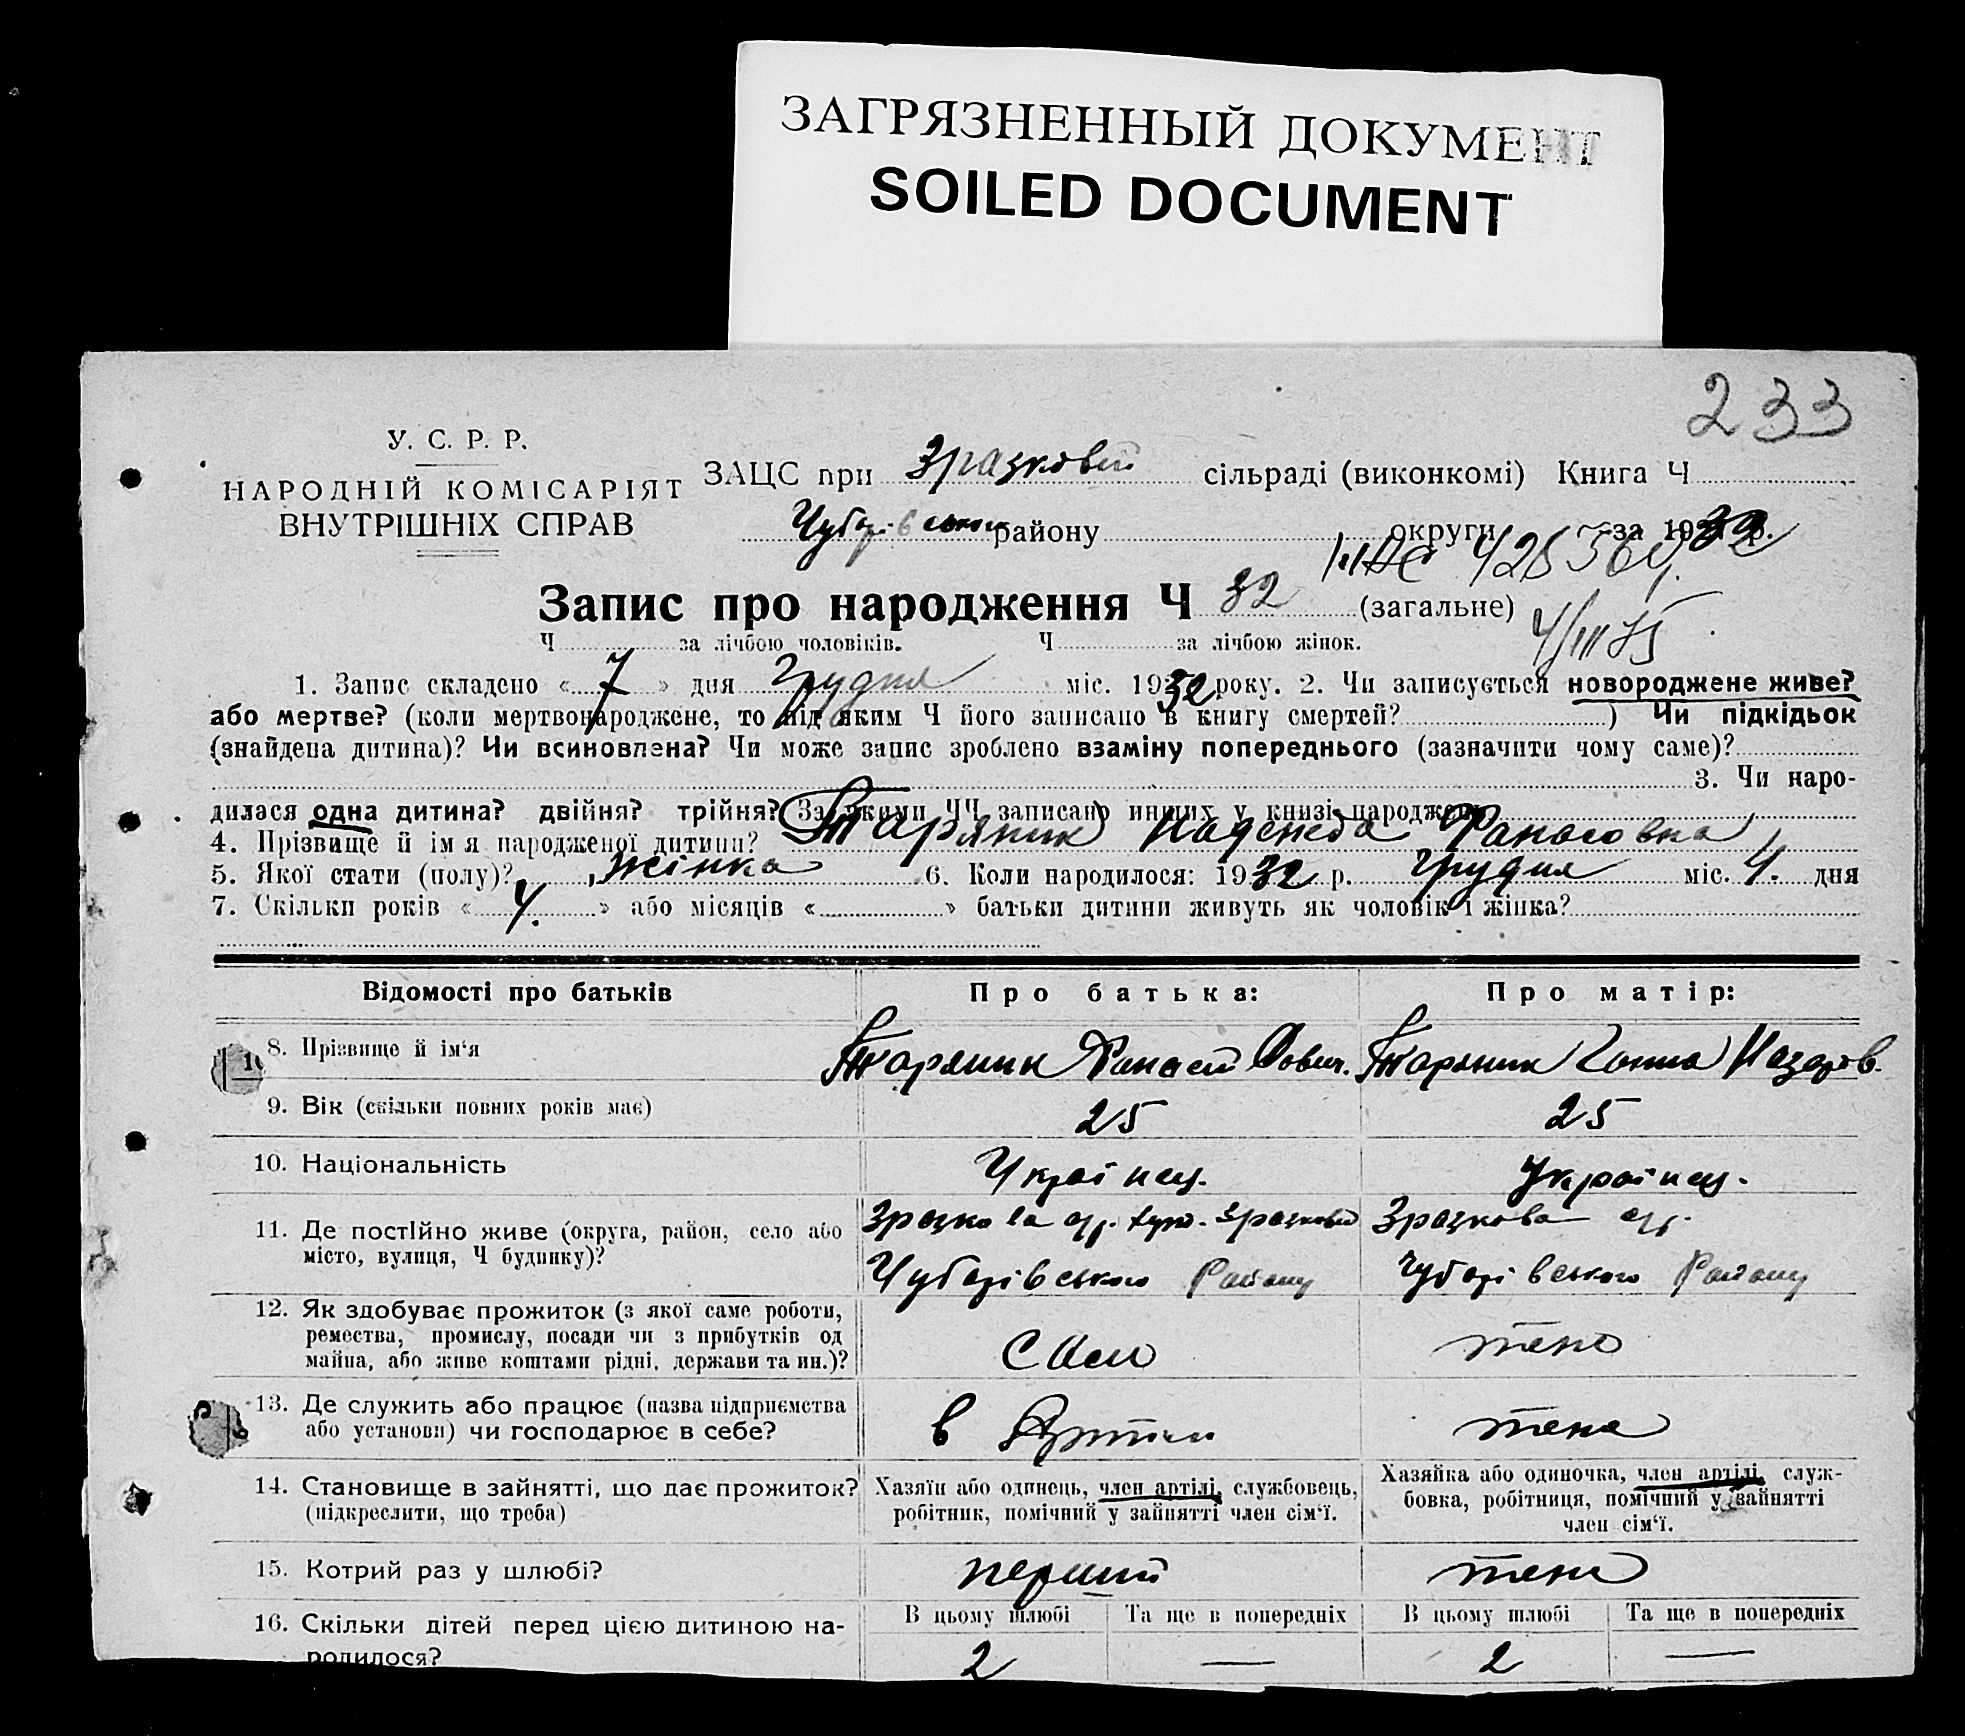 ЗАГРЯЗНЕННЫЙ ДОКУМЕНТ
SOILED DOCUMENT
233
У. С. Р. Р.
НАРОДНІЙ КОМІСАРІЯТ
ВНУТРІШНІХ СПРАВ
ЗАЦС при Зразковій сільраді (виконкомі) Книга Ч
району округи за 1932 р.
Запис про народження Ч 32 (загальне)
Ч за лічбою чоловіків. Ч за лічбою жінок.
1. Запис складено « 7 » дня Грудня міс. 1932 року. 2. Чи записується новороджене живе?
або мертве? (коли мертвонароджене, то під яким Ч його записано в книгу смертей? ) Чи підкідьок
(знайдена дитина)? Чи всиновлена? Чи може запис зроблено взаміну попереднього (зазначити чому саме)?
3. Чи наро-
дилася одна дитина? двійня? трійня? За якими ЧЧ записано инших у книзі народжень
4. Прізвище й ім'я народженої дитини? Таряник Надежда Фанасовна
5. Якої стати (полу)? жінка 6. Коли народилося: 1932 р. Грудня міс. 4. дня
7. Скільки років « 4. » або місяців « » батьки дитини живуть як чоловік і жінка?
Відомості про батьків Про батька: Про матір:
8. Прізвище й ім'я Таряник Таряник
9. Вік (скільки повних років має) 25 25
10. Національність Українец. Українец.
11. Де постійно живе (округа, район, село або Зразкова
місто, вулиця, Ч будинку)? Району Району
12. Як здобуває прожиток (з якої саме роботи,
ремества, промислу, посади чи з прибутків од
майна, або живе коштами рідні, держави та ин.)? тене
13. Де служить або працює (назва підприємства
або установи) чи господарює в себе? в Артіли тене
14. Становище в зайнятті, що дає прожиток? Хазяїн або одинець, член артілі, службовець, Хазяйка або одиночка, член артілі, служ-
(підкреслити, що треба) робітник, помічний у зайнятті член сім'ї. бовка, робітниця, помічний у зайнятті
член сім'ї.
15. Котрий раз у шлюбі? перший тене
16. Скільки дітей перед цією дитиною на- В цьому шлюбі Та ще в попередніх В цьому шлюбі Та ще в попередніх
родилося? 2 — 2 —